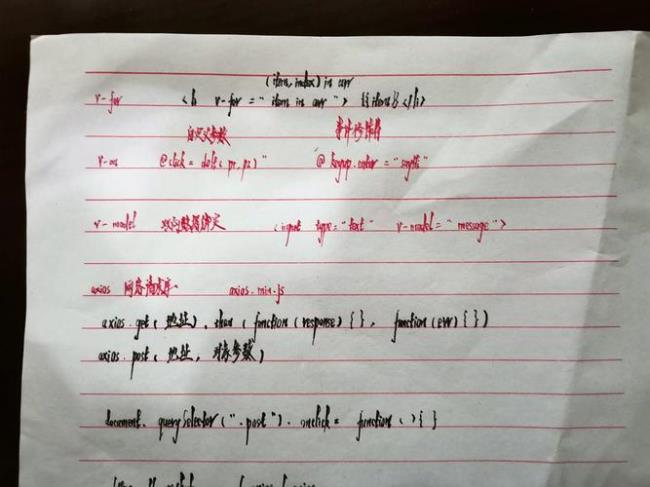 (item, index) in arr
v-for <li v-for = "item in arr"> {{item}} </li>
自定义参数 事件修饰符
v-on @click = doIt(p1, p2)" @keyup.enter = "sayHi"
v-model 双向数据绑定 <input type="text" v-model="message">
axios 网络请求库 axios.min.js
axios.get(地址).then(function(response){ }, function(err){ })
axios.post(地址, 对象参数)
document.querySelector(".post").onclick = function(){ }